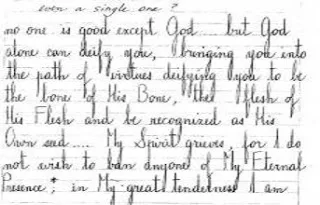 even a single one ?
no one is good except God.... but God
alone can deify you, bringing you into
the path of virtues deifying you to be
the bone of His Bone, the flesh of
His Flesh and be recognized as His
Own seed.... My Spirit grieves, for I do
not wish to ban anyone of My Eternal
Presence;* in My great tenderness I am